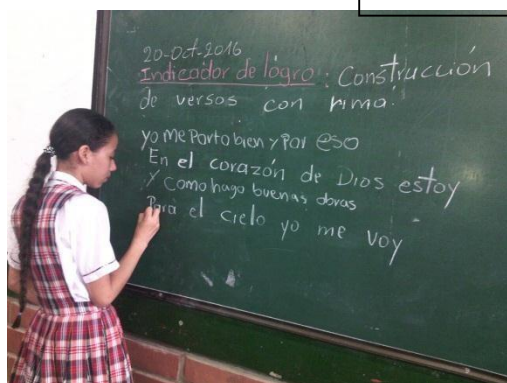 20-Oct-2016
Indicador de lógro: Construcción
de versos con rima.
yo me Porto bien y Por eso
En el corazón de Dios estoy
y como hago buenas obras
Para el cielo yo me voy